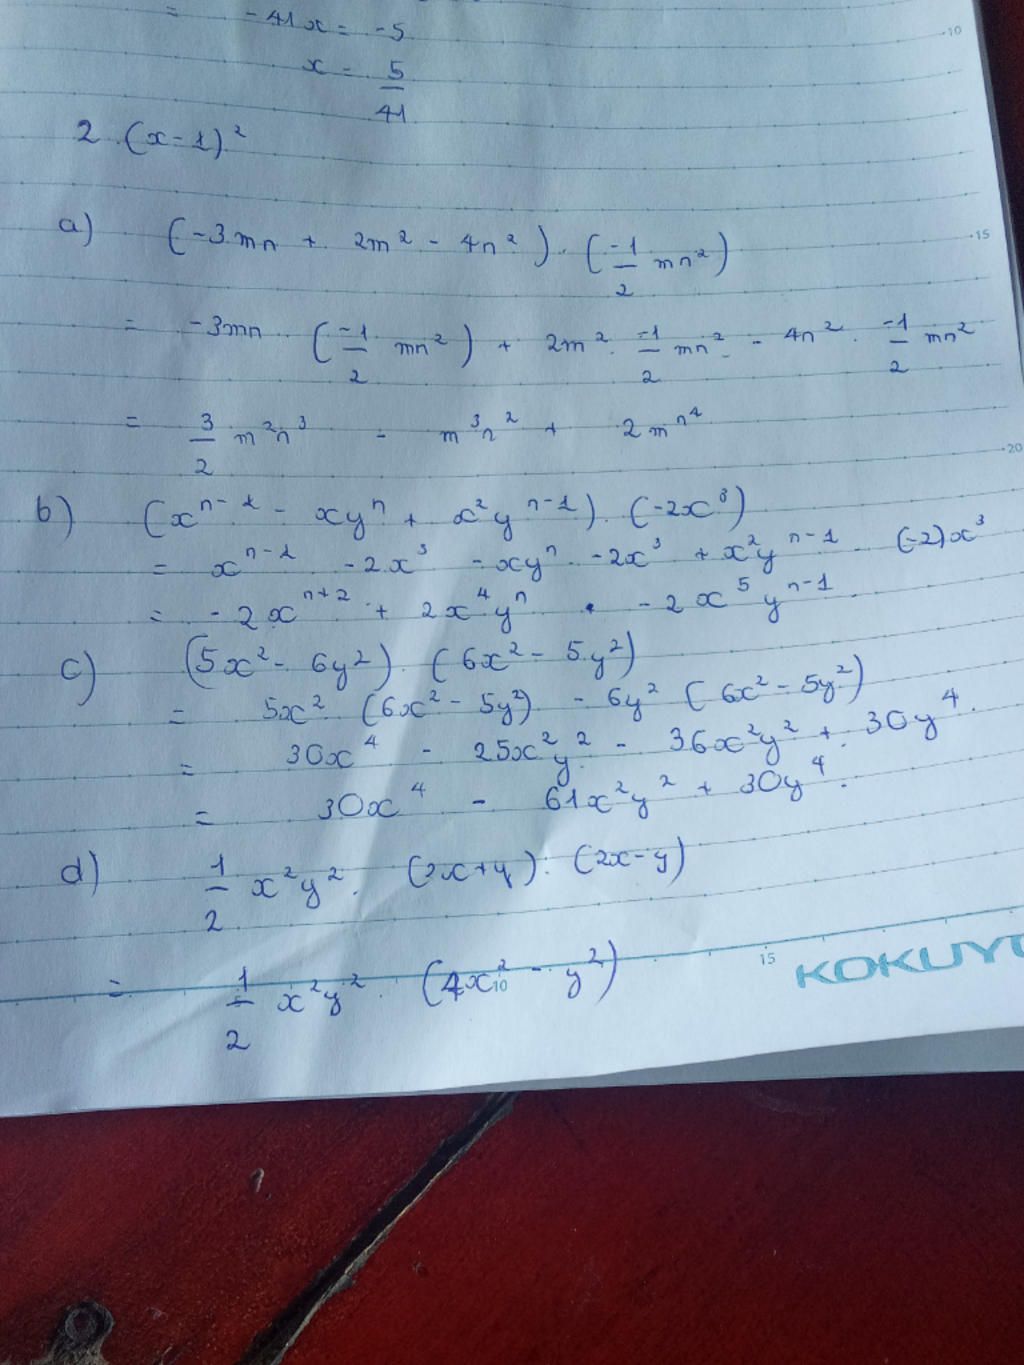 = -41x = -5
x = 5/41
10
2. (x-1)²
a) (-3mn + 2m² - 4n²). (-1/2 mn²)
15
= -3mn (-1/2 mn²) + 2m². -1/2 mn² - 4n². -1/2 mn²
= 3/2 m²n³ - m³n² + 2mn⁴
20
b) (xⁿ⁻¹ - xyⁿ + x²yⁿ⁻¹). (-2x³)
= xⁿ⁻¹ -2x³ - xyⁿ -2x³ + x²yⁿ⁻¹ (-2)x³
= -2xⁿ⁺² + 2x⁴yⁿ - 2x⁵yⁿ⁻¹
c) (5x² - 6y²). (6x² - 5y²)
= 5x² (6x² - 5y²) - 6y² (6x² - 5y²)
= 30x⁴ - 25x²y² - 36x²y² + 30y⁴.
= 30x⁴ - 61x²y² + 30y⁴.
d) 1/2 x²y². (2x+y). (2x-y)
= 1/2 x²y². (4x² - y²)
10 15 KOKUYO